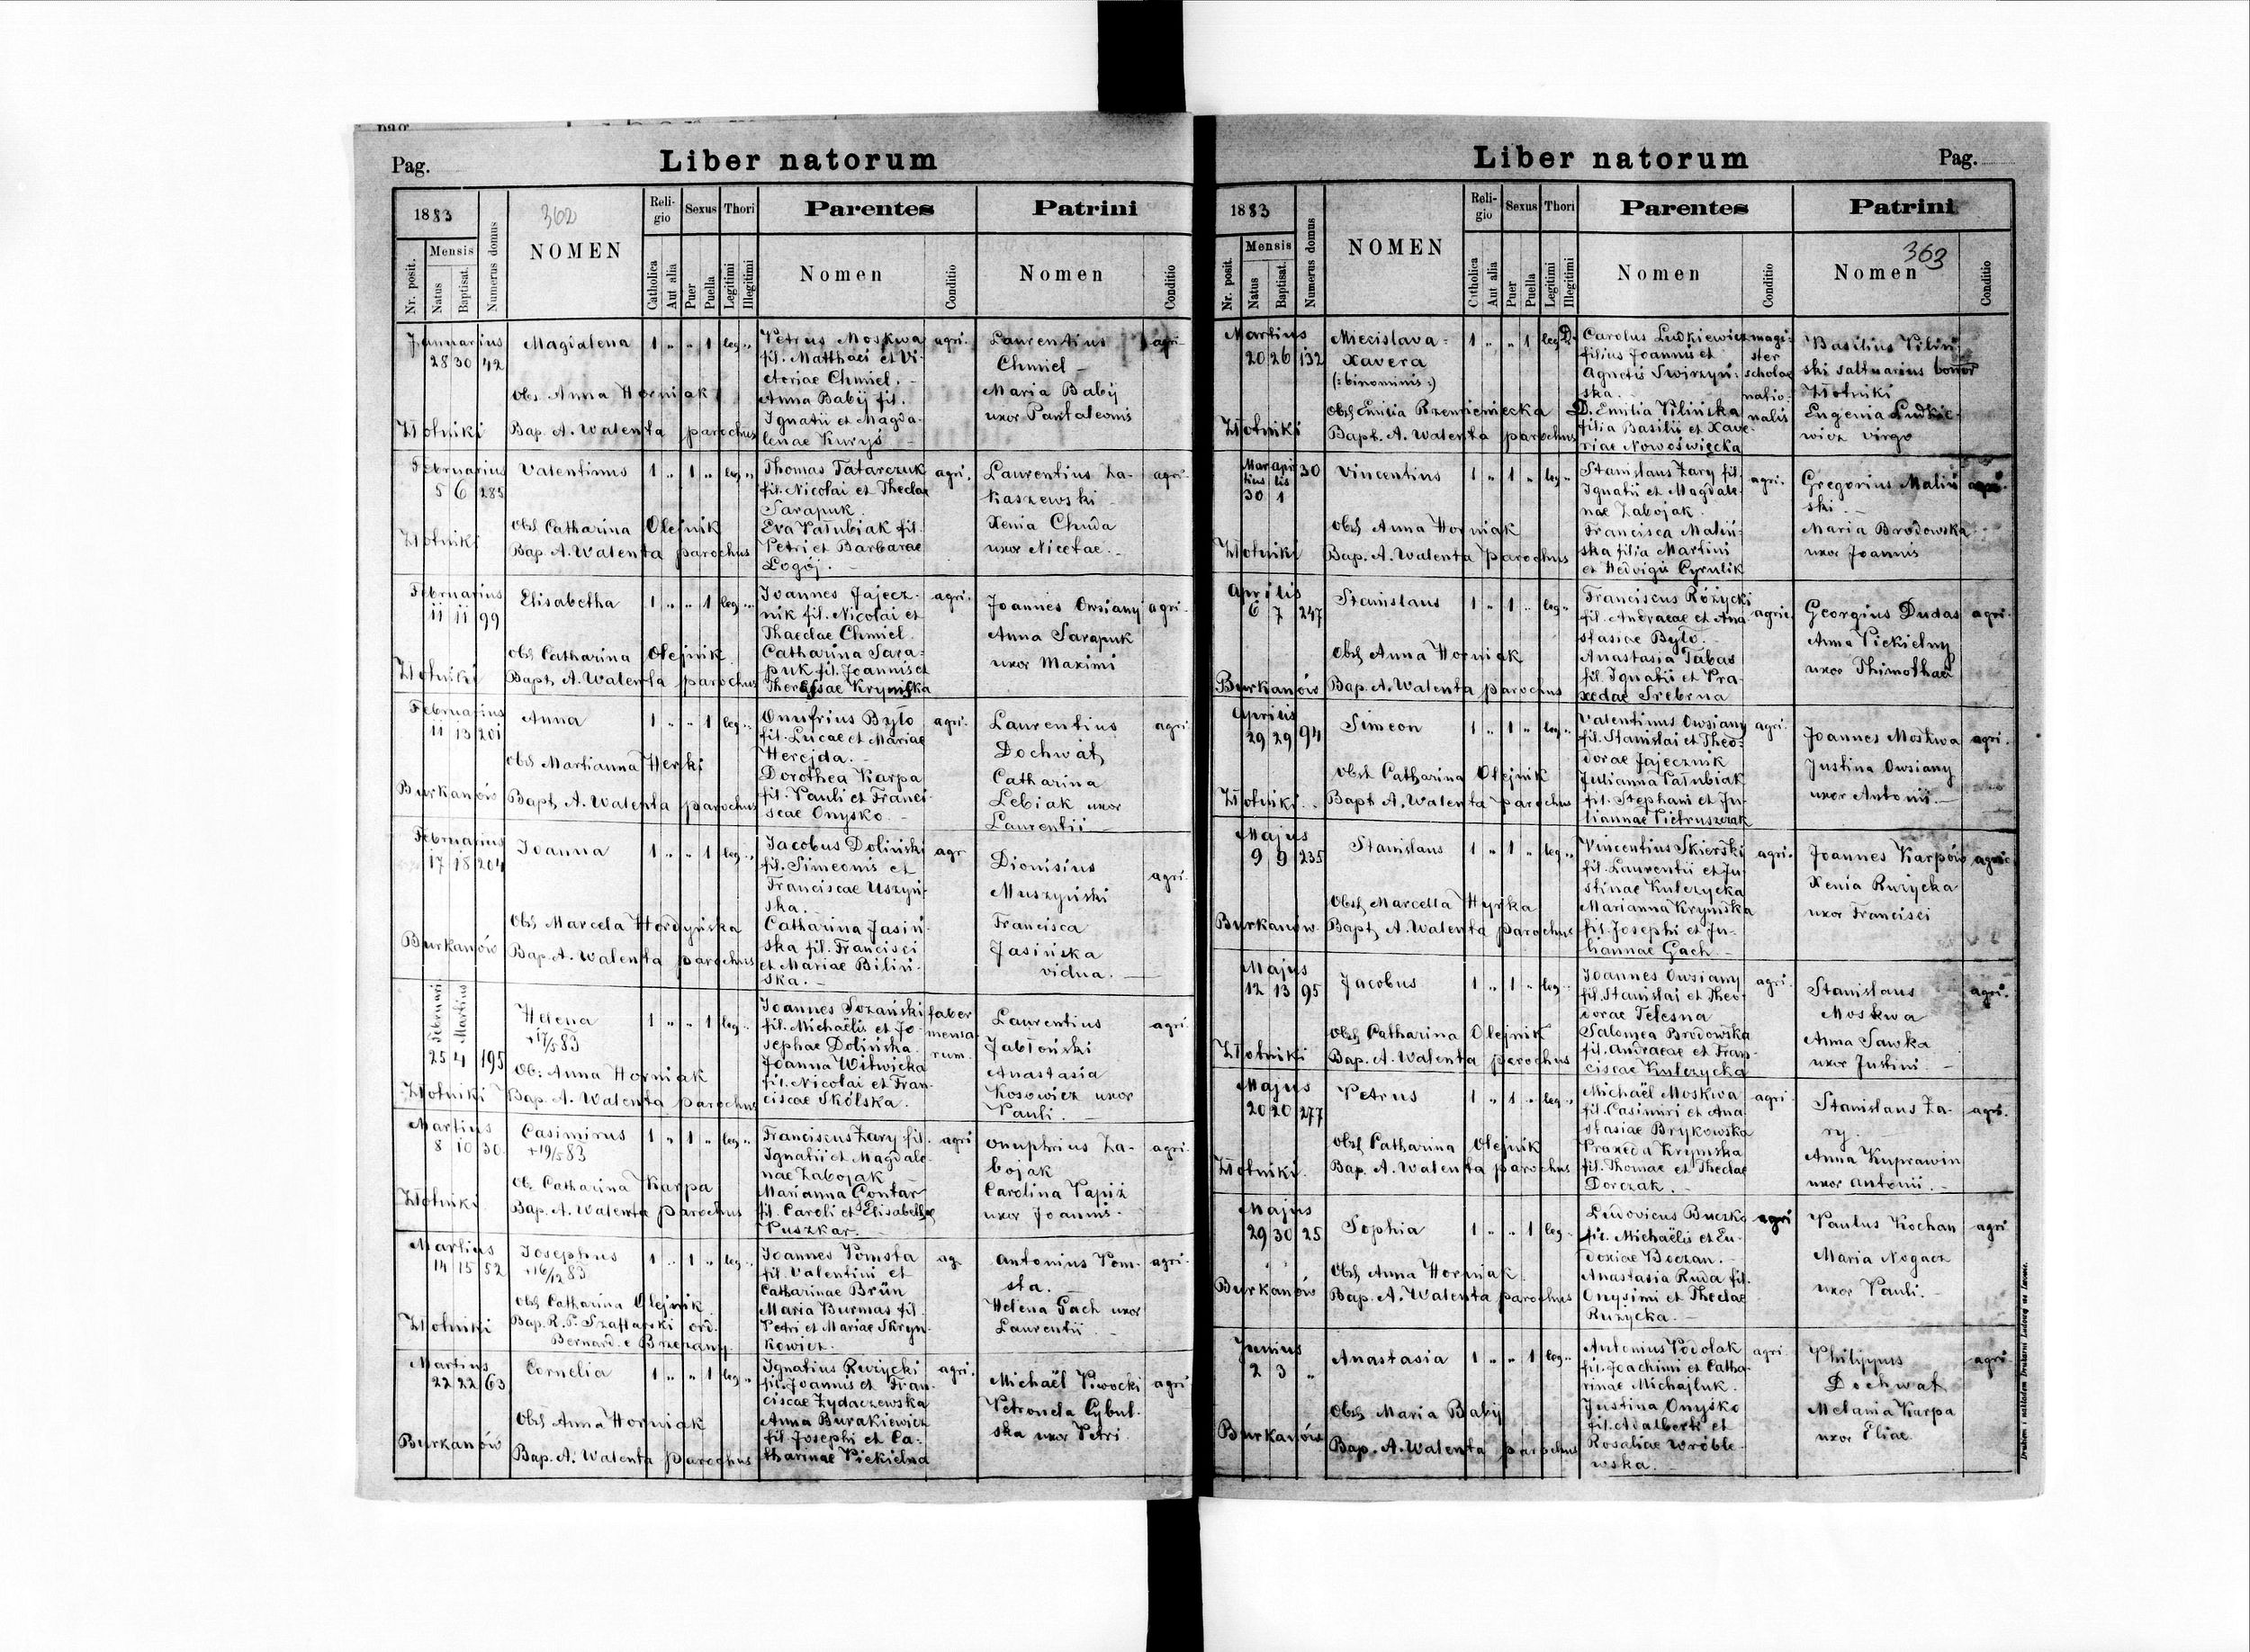 Pag.
Liber natorum
1883
Nr. posit.
Mensis
Natus
Baptisat.
Numerus domus
362
NOMEN
Religio
Catholica
Aut alia
Sexus
Puer
Puella
Thori
Legitimi
Illegitimi
Parentes
Nomen
Conditio
Patrini
Nomen
Conditio
Januarius
28 30 42
Złotniki
Magdalena
Obs. Anna Horniak
Bap. A. Walenta parochus
1 " " 1 leg "
Petrus Moskwa
fil. Matthaei et Vi-
ctoriae Chmiel. -
Anna Babij fil.
Ignatii et Magda-
lenae Kuryś -
agri.
Laurentius
Chmiel -
Maria Babij
uxor Pantaleonis
agri.
Februarius
5 6 285
Złotniki
Valentinus
Obs Catharina Olejnik
Bap. A. Walenta parochus
1 " 1 " leg "
Thomas Tatarczuk
fil. Nicolai et Theclae
Sarapuk.
Eva Pałubiak fil.
Petri et Barbarae
Łogój. -
agri.
Laurentius Za-
kaszewski -
Xenia Chuda
uxor Nicetae. -
agri.
Februarius
11 11 99
Złotniki
Elisabetha
Obs Catharina Olejnik
Bapt. A. Walenta parochus
1 " " 1 leg "
Joannes Jajecz-
nik fil. Nicolai et
Thaeclae Chmiel.
Catharina Sara-
puk fil. Joannis et
Theressae Krymska
agri.
Joannes Owsiany
Anna Sarapuk
uxor Maximi
agri.
Februarius
11 13 201
Burkanów
Anna
Obs Martianna Herki
Bapt. A. Walenta parochus
1 " " 1 leg "
Onufrius Było
fil. Lucae et Mariae
Herejda. -
Dorothea Karpa
fil. Pauli et Franci-
scae Onysko. -
agri.
Laurentius
Dochwat
Catharina
Lebiak uxor
Laurentii
agri.
Februarius
17 18 204
Burkanów
Joanna
Obs Marcela Hordyńska
Bap. A. Walenta parochus
1 " " 1 leg "
Jacobus Doliński
fil. Simeonis et
Franciscae Uszyń-
ska. -
Catharina Jasiń-
ska fil. Francisci
et Mariae Biliń-
ska. -
agr
Dionisius
Muszyński
Francisca
Jasińska
vidua. -
agri.
Februari Martius
25 4 195
Złotniki
Helena
+17/5 83
Ob: Anna Horniak
Bap. A. Walenta parochus
1 " " 1 leg "
Joannes Sozański
fil. Michaëlis et Jo-
sephae Dolińska.
Joanna Witwicka
fil. Nicolai et Fran-
ciscae Skólska.
faber
mensa-
rum.
Laurentius
Jabłoński
Anastasia
Kosowicz uxor
Pauli. -
agri.
Martius
8 10 30
Złotniki
Casimirus
+19/5 83
Ob. Catharina Karpa
Bap. A. Walenta parochus
1 " 1 " leg "
Franciscus Żary fil.
Ignatii et Magdale-
nae Zabojak
Marianna Contar
fil. Caroli et Elisabethae
Puszkar. -
agri
Onuphrius Za-
bojak
Carolina Papiż
uxor Joannis.
agri.
Martius
14 15 52
Złotniki
Josephus
+16/12 83
Obs Catharina Olejnik
Bap. R. P. Szaflarski ord.
Bernard. e Brzeżany.
1 " 1 " leg "
Joannes Pomsta
fil. Valentini et
Catharinae Brün
Maria Burmas fil.
Petri et Mariae Skryn-
kowicz.
ag.
Antonius Pom-
sta. -
Helena Gach uxor
Laurentii -
agri.
Martius
22 22 63
Burkanów
Cornelia
Obs Anna Horniak
Bap. A. Walenta parochus
1 " " 1 leg "
Ignatius Rużycki
fil. Joannis et Fran-
ciscae Żydaczewska
Anna Burakiewicz
fil. Josephi et Ca-
tharinae Piekielna
agri.
Michaël Piwocki
Petronela Cybul-
ska uxor Petri
agri
Liber natorum
Pag.
1883
Nr. posit.
Mensis
Natus
Baptisat.
Numerus domus
NOMEN
Religio
Catholica
Aut alia
Sexus
Puer
Puella
Thori
Legitimi
Illegitimi
Parentes
Nomen
Conditio
Patrini
363
Nomen
Conditio
Martius
20 26 132
Złotniki
Miecislava =
Xavera
(: binominis :)
Obs Emilia Rzemieniecka
Bapt. A. Walenta parochus
1 " " 1 leg
D. Carolus Ludkiewicz
filius Joannis et
Agnetis Swirzyń-
ska. -
D. Emilia Vilińska
filia Basilii et Xave-
riae Nowoświęcka
magi-
ster
scholae
natio-
nalis
Basilius Viliń-
ski saltuarius bonor
Złotniki
Eugenia Ludkie-
wicz virgo
Martius aprilis
30 1 30
Złotniki
Vincentius
Obs Anna Horniak
Bap. A. Walenta parochus
1 " 1 " leg "
Stanislaus Żary fil.
Ignatii et Magdale-
nae Zabojak.
Francisca Maliń-
ska filia Martini
et Hedvigis Cyrulik
agri.
Gregorius Maliń-
ski. -
Maria Brodowska
uxor Joannis
agri.
Aprilis
6 7 247
Burkanów
Stanislaus
Obs Anna Horniak
Bap. A. Walenta parochus
1 " 1 " leg "
Franciscus Różycki
fil. Andraeae et Ana-
stasiae Było. -
Anastasia Tabas
fil. Ignatii et Pra-
xedae Srebrna
agri.
Georgius Dudas
Anna Piekielny
uxor Thimothaei
agri.
Aprilis
29 29 94
Złotniki.
Simeon
Obst Catharina Olejnik
Bapt A. Walenta parochus
1 " 1 " leg "
Valentinus Owsiany
fil. Stanislai et Theo-
dorae Jajecznik
Julianna Pałubiak
fil. Stephani et Ju-
liannae Pietruszczak
agri.
Joannes Moskwa
Justina Owsiany
uxor Antonii. -
agri.
Majus
9 9 235
Burkanów
Stanislaus
Obst Marcella Hyrka
Bapt. A. Walenta parochus
1 " 1 " leg "
Vincentius Skierski
fil. Laurentii et Ju-
stinae Kulczycka
Marianna Krymska
fil. Josephi et Ju-
liannae Gach -
agri.
Joannes Karpów
Xenia Rużycka
uxor Francisci
agri.
Majus
12 13 95
Złotniki
Jacobus
Obst Catharina Olejnik
Bap. A. Walenta parochus
1 " 1 " leg "
Joannes Owsiany
fil. Stanislai et Theo-
dorae Telesna
Salomea Brodowska
fil. Andraeae et Fran-
ciscae Kulczycka
agri.
Stanislaus
Moskwa
Anna Sawka
uxor Justini. -
agri.
Majus
20 20 277
Złotniki.
Petrus
Obst Catharina Olejnik
Bap. A. Walenta parochus
1 " 1 " leg "
Michaël Moskwa
fil. Casimiri et Ana-
stasiae Brykowska
Praxeda Krymska
fil. Thomae et Theclae
Dorczak. -
agri.
Stanislaus Ża-
ry. -
Anna Kuprawin
uxor Antonii. -
agri.
Majus
29 30 25
Burkanów
Sophia
Obst Anna Horniak
Bap. A. Walenta parochus
1 " " 1 leg "
Ludovicus Buczko
fil. Michaëlis et Eu-
doxiae Boczan. -
Anastasia Ruda fil.
Onysimi et Theclae
Rużycka. -
agri
Paulus Kochan
Maria Nogacz
uxor Pauli. -
agri.
Junius
2 3 "
Burkanów
Anastasia
Obst Maria Babij
Bap. A. Walenta parochus
1 " " 1 leg "
Antonius Podolak
fil. Joachimi et Catha-
rinae Michajluk.
Justina Onysko
fil. Adalberti et
Rosaliae Wróble-
wska. -
agri
Philippus
Dochwat
Melania Karpa
uxor Eliae
agri